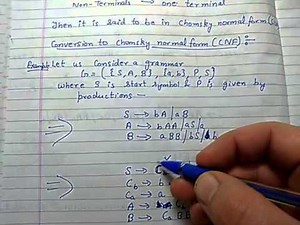 Non-Terminals → one terminal
Then it is said to be in Chomsky-normal form
Conversion to Chomsky-normal form (CNF) :-
let us Consider a grammar
G = ({S, A, B}, {a, b}, P, S)
where S is start symbol & P is given by
productions -
S → bA / aB
A → bAA / aS / a
B → aBB / bS / b
S →
Cb → b
Ca → a
A →
B →